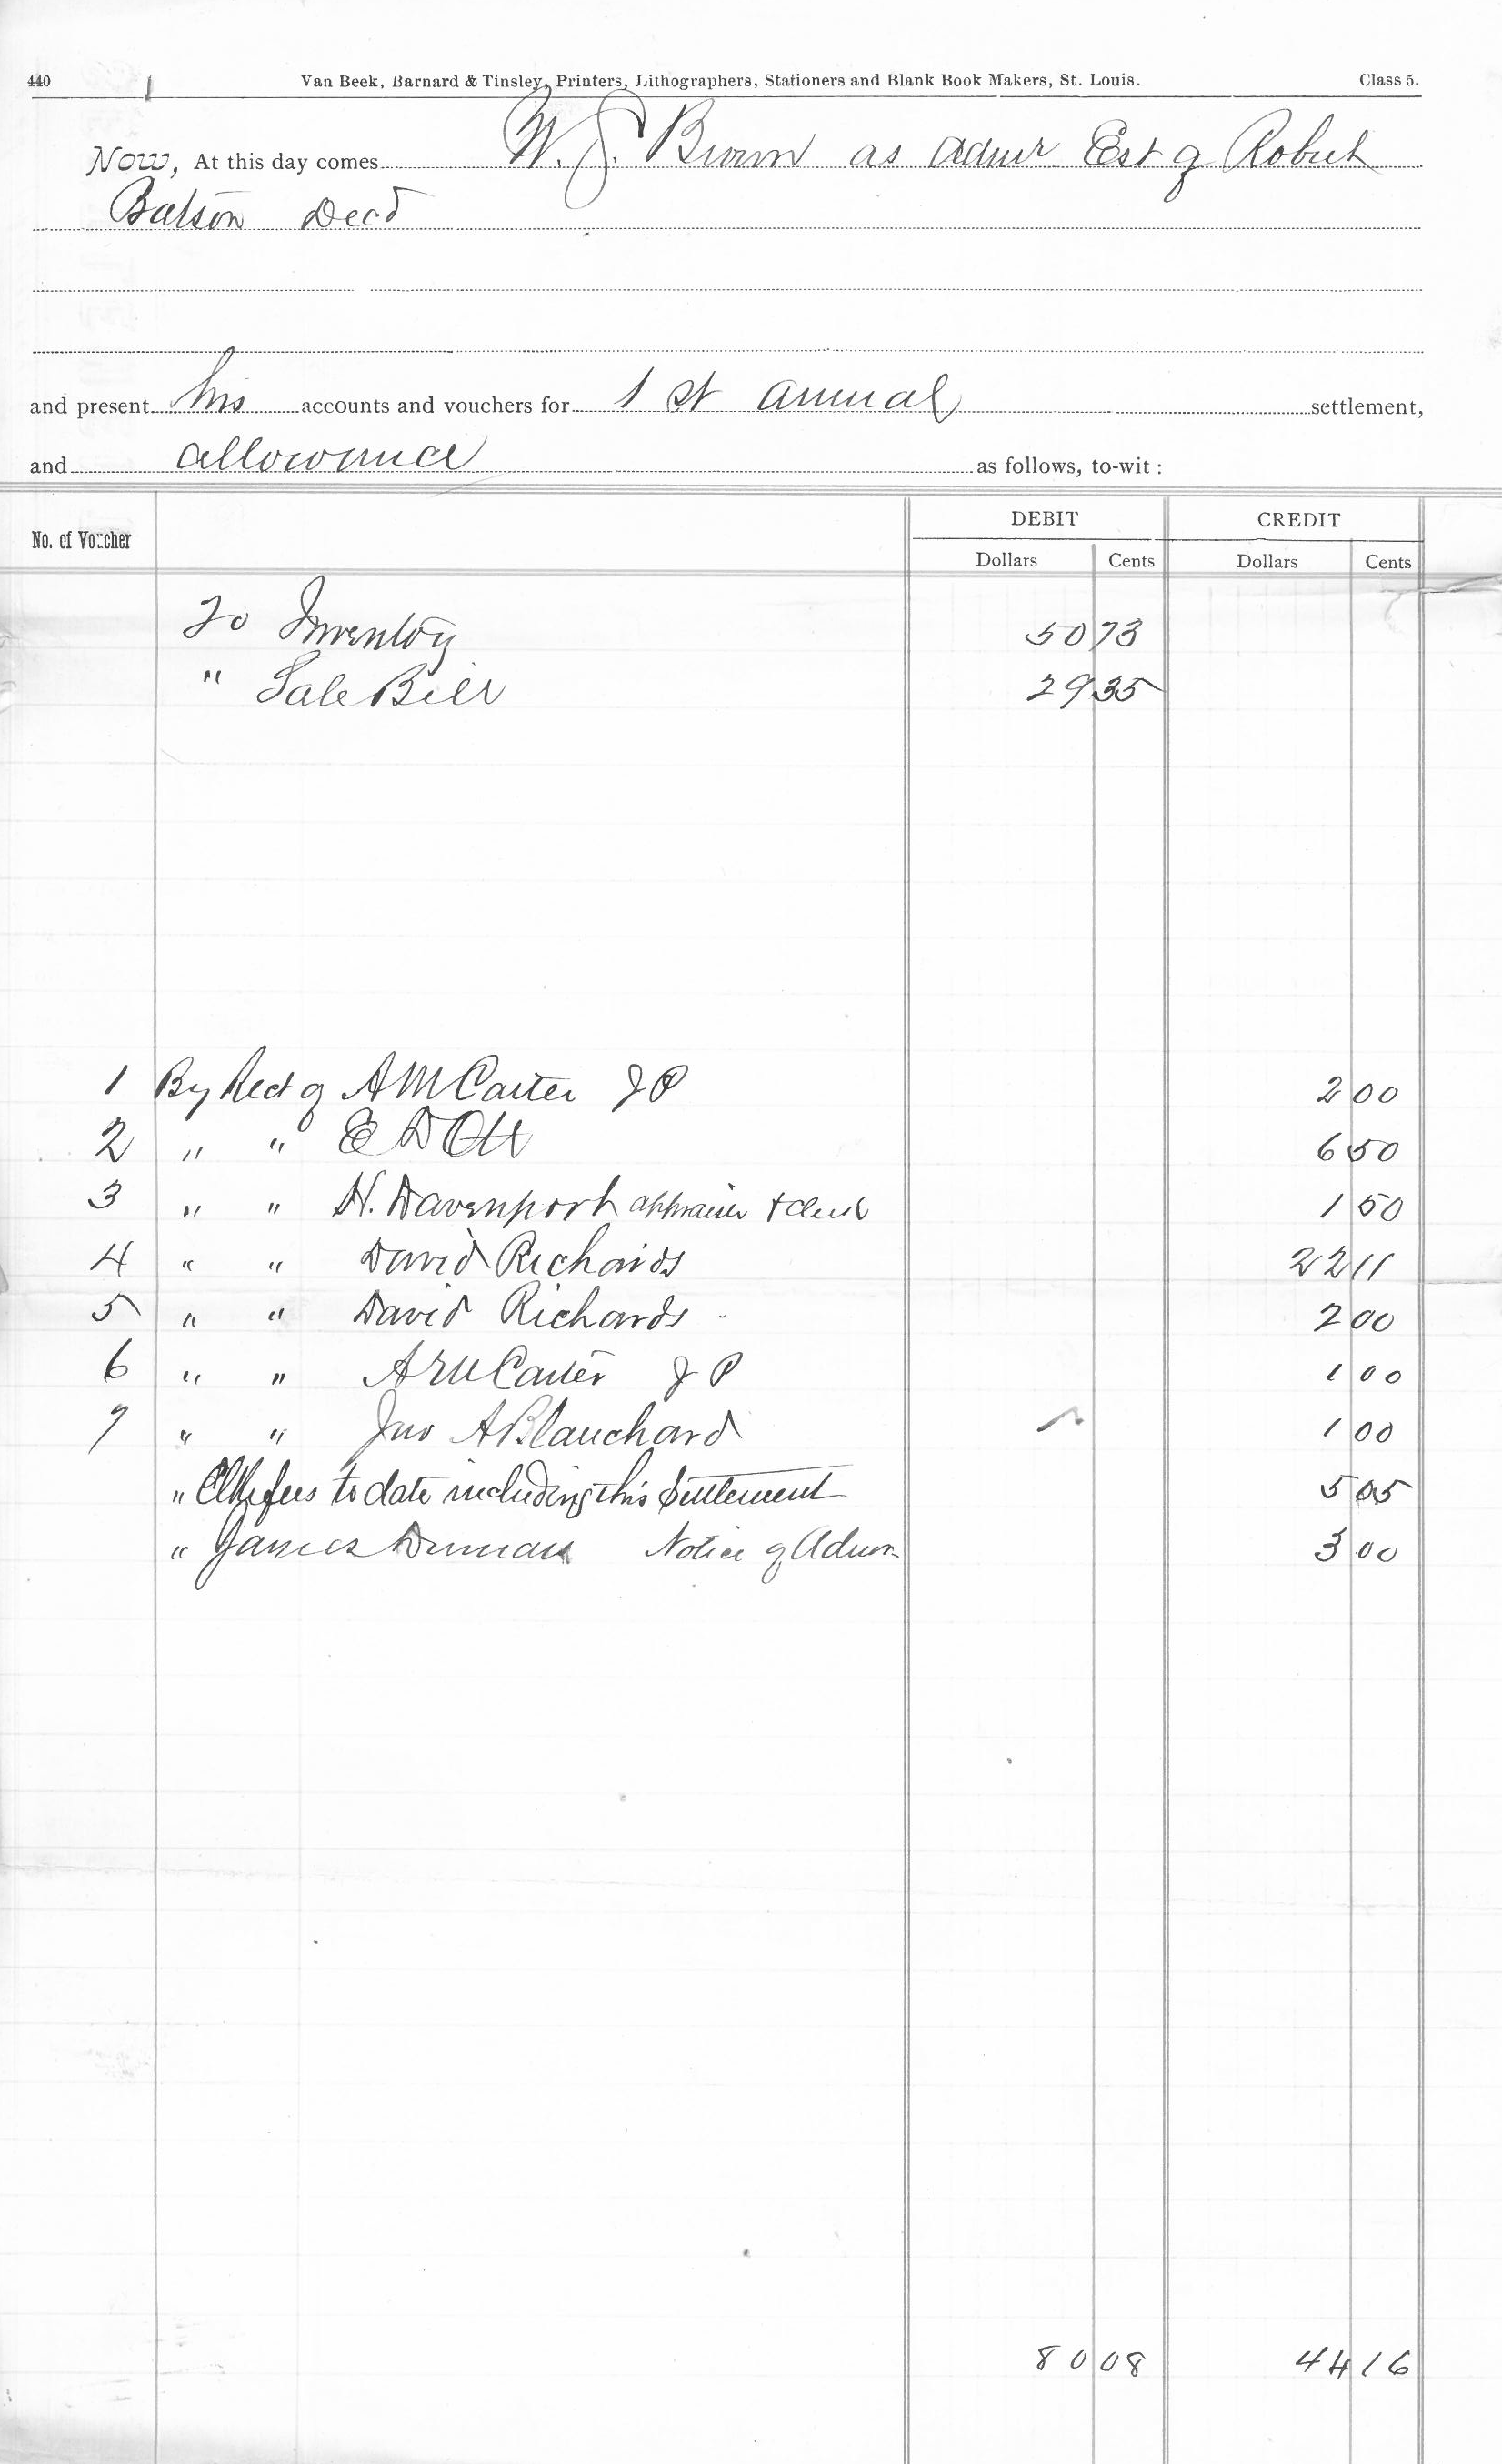 440 Van Beek, Barnard & Tinsley, Printers, Lithographers, Stationers and Blank Book Makers, St. Louis. Class 5.
Now, At this day comes W. J. Brown as admr Est of Robert
Batson Decd
and present his accounts and vouchers for 1st annual settlement,
and allowance as follows, to-wit :
No. of Voucher DEBIT CREDIT
Dollars Cents Dollars Cents
To Inventory 50 73
" Sale Bill 29 35
1 By Rect of A M Carter J P 2 00
2 " " E D Ott 6 50
3 " " H. Davenport appraiser + clerk 1 50
4 " " David Richards 22 11
5 " " David Richards 2 00
6 " " A M Carter J P 1 00
7 " " Jno A Blanchard 1 00
" Clk fees to date including this Settlement 5 05
" James Notice of Admr 3 00
80 08 44 16